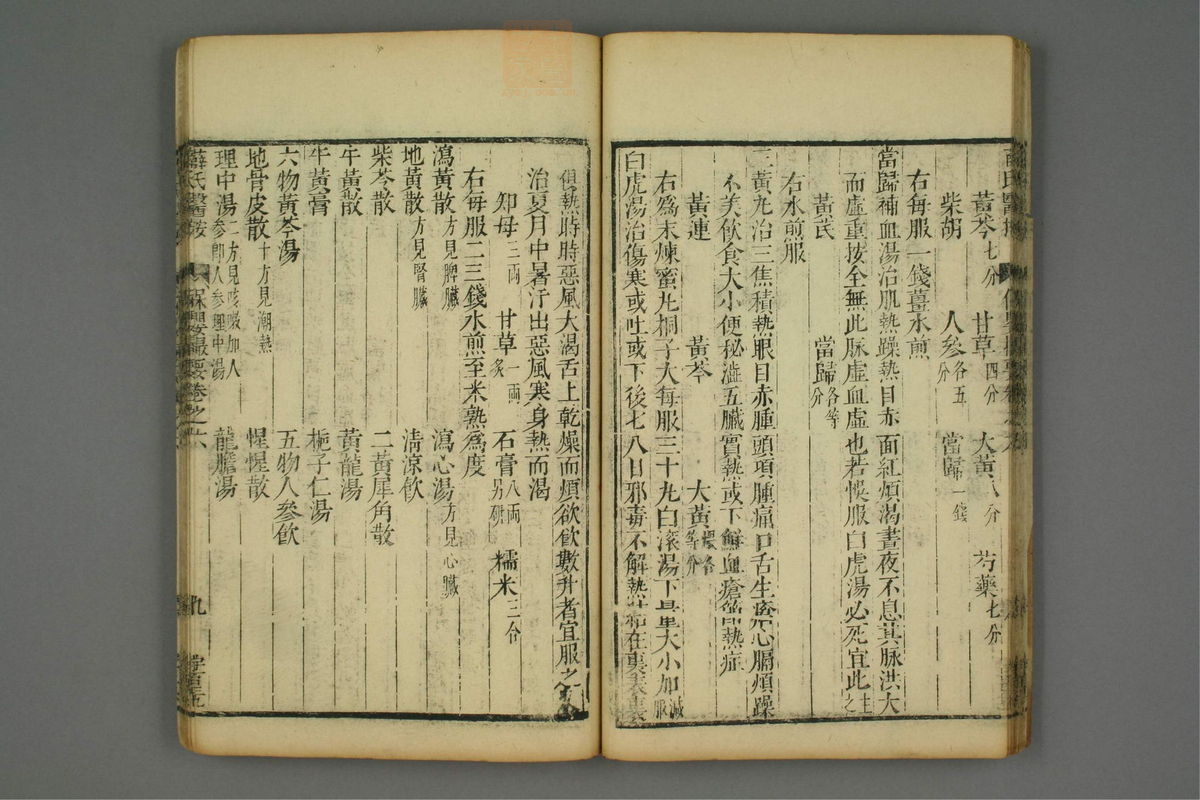 黃芩七分　甘草四分　大黃八分　芍藥七分
柴胡　人參各五分　當歸一錢
右每服一錢薑水煎
當歸補血湯治肌熱躁熱目赤面紅煩渴晝夜不息其脉洪大
而虛重按全無此脉虛血虛也若悞服白虎湯必死宜此主之
黃芪　當歸各等分
右水煎服
三黃丸治三焦積熱眼目赤腫頭項腫痛口舌生瘡心膈煩躁
不美飲食大小便秘澁五臟實熱或下鮮血瘡癤熱症
黃連　黃芩　大黃煨各等分
右爲末煉蜜丸桐子大每服三十丸白滾湯下量大小加減服
白虎湯治傷寒或吐或下後七八日邪毒不解熱結在裏表裏
俱熱時時惡風大渴舌上乾燥而煩欲飲數升者宜服之又
治夏月中暑汗出惡風寒身熱而渴
知母三兩　甘草一兩炙　石膏八兩另研　糯米三合
右每服二三錢水煎至米熟爲度
瀉黃散方見脾臟　瀉心湯方見心臟
地黃散方見腎臟　清涼飲
柴芩散　二黃犀角散
牛黃散　黃龍湯
牛黃膏　梔子仁湯
六物黃芩湯　五物人參飲
地骨皮散十方見潮熱　惺惺散
理中湯二方見咳嗽加人參即人參理中湯　龍膽湯
薛氏醫按　保嬰撮要卷之六　九